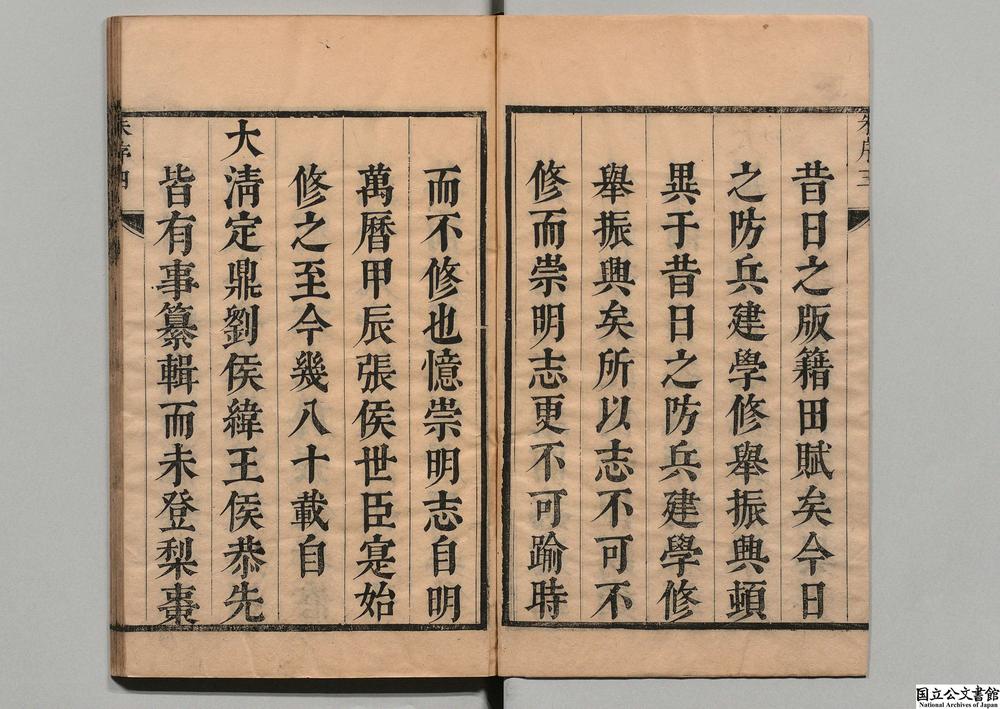 昔日之版籍田賦矣今日
之防兵建學修舉振興頓
異于昔日之防兵建學修
舉振興矣所以志不可不
修而崇明志更不可踰時
而不修也憶崇明志自明
萬曆甲辰張侯世臣寔始
修之至今幾八十載自
大淸定鼎劉侯緯王侯恭先
皆有事纂輯而未登梨棗
朱序三
朱序四
国立公文書館
National Archives of Japan